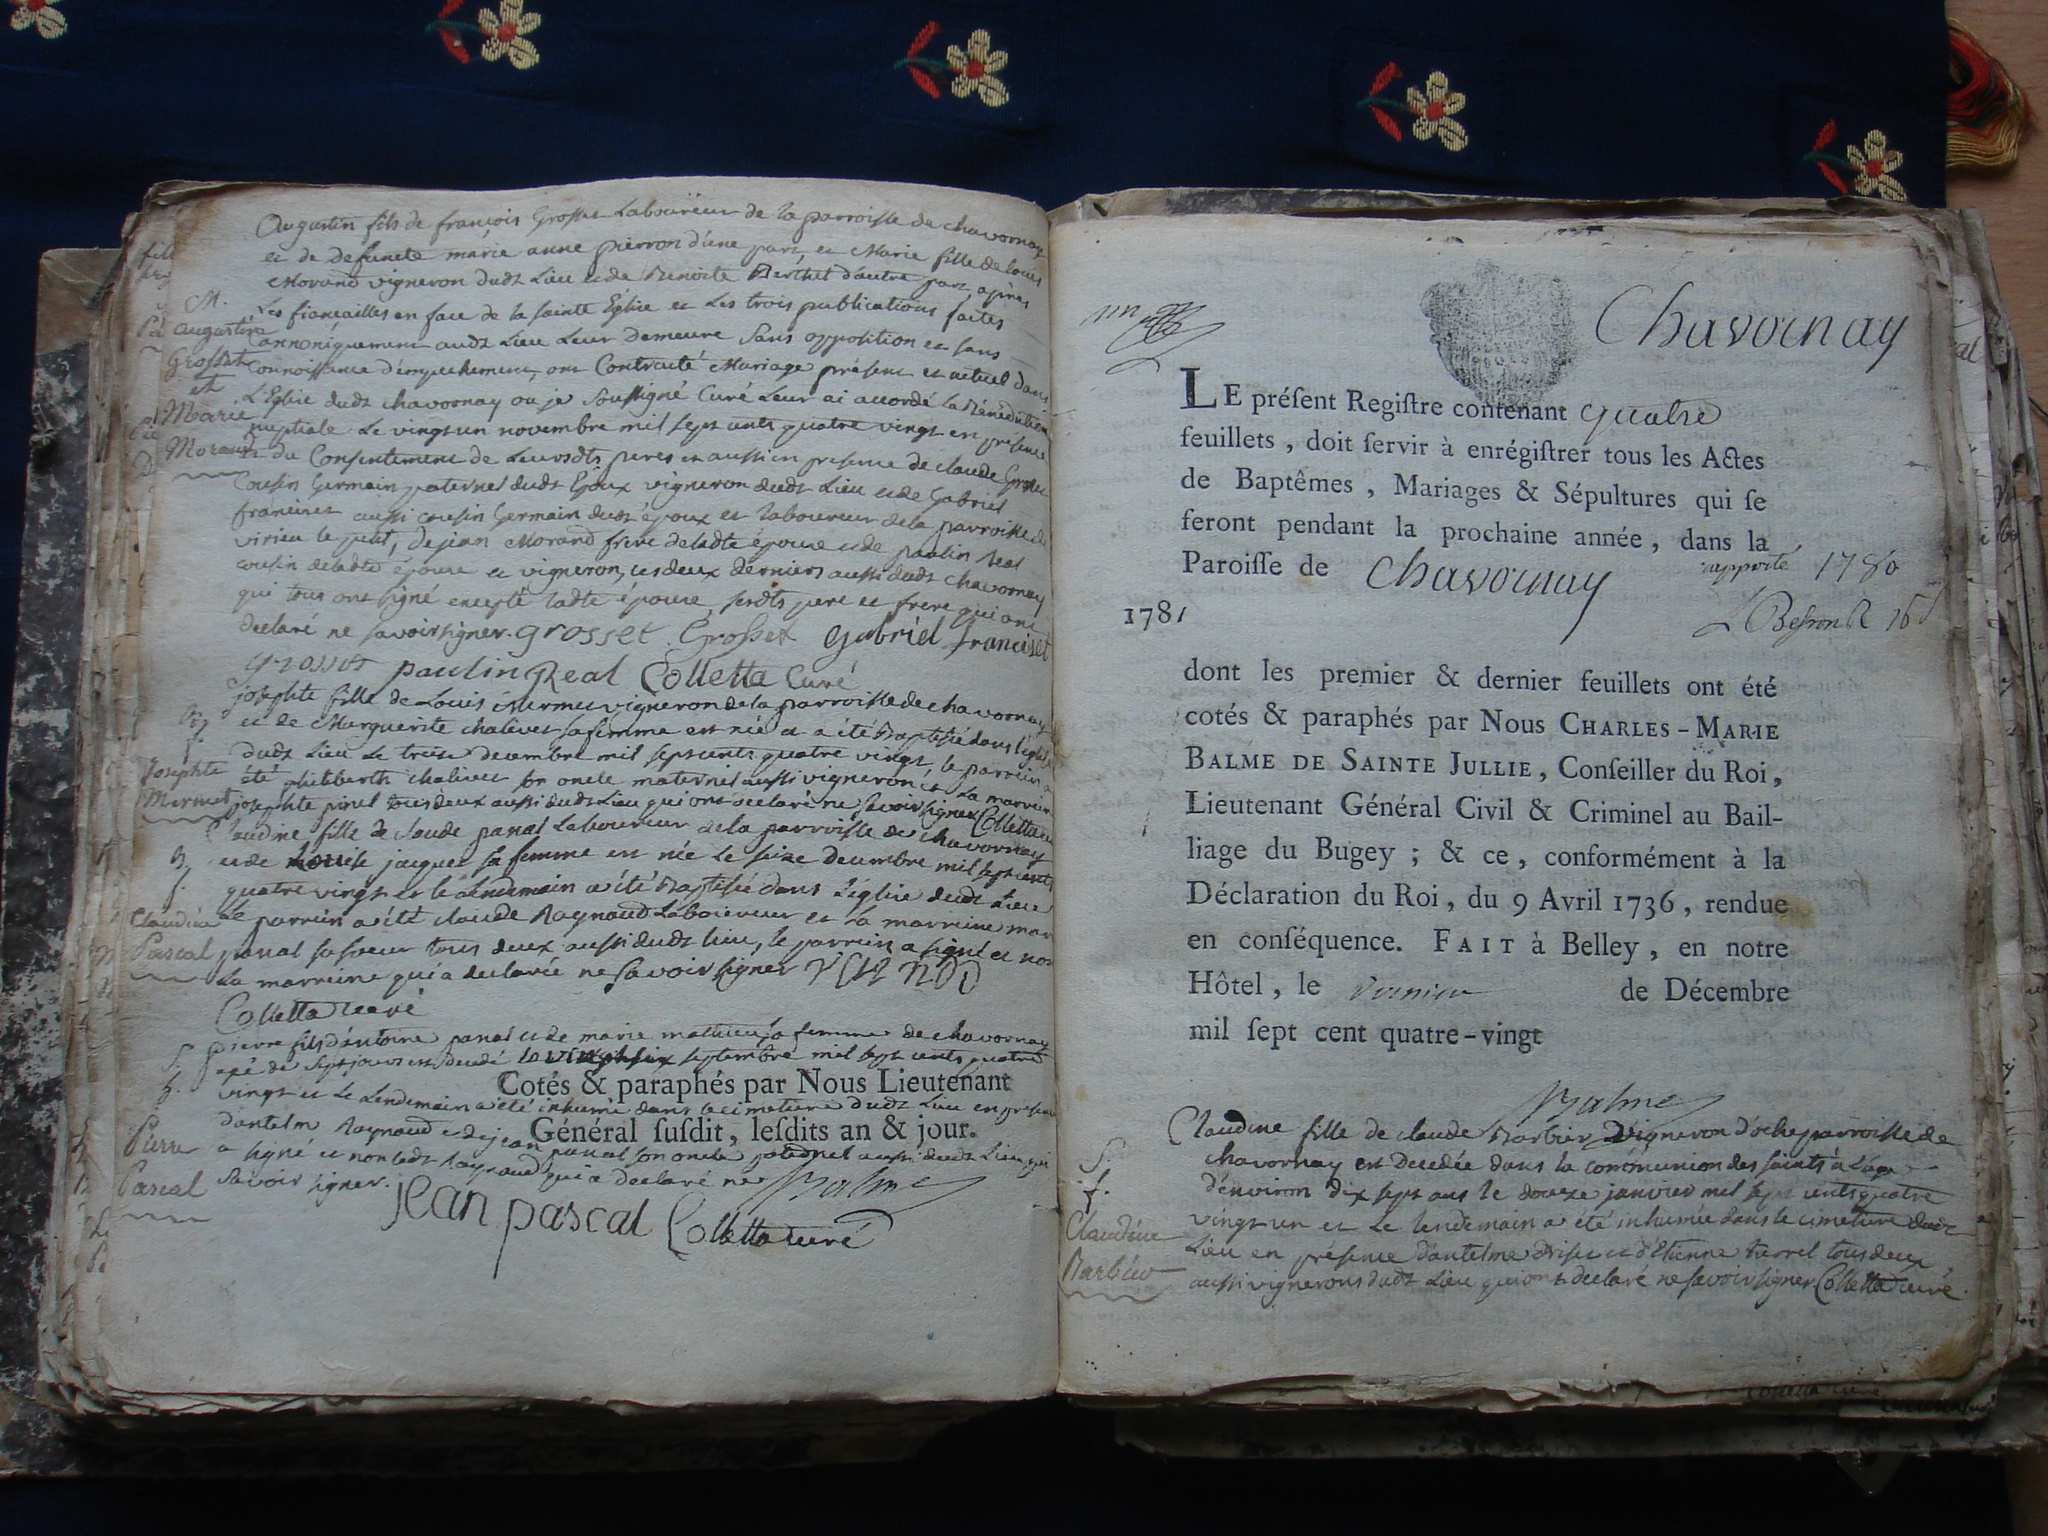 Augustin fils de françois Grosset Laboureur de la parroisse de chavornay
et de defuncte marie anne pierron d'une part, et Marie fille de Louis
Morand vigneron dudt Lieu et de Benoite Berthet d'autre part, apres
M.
Les fiancailles en face de la sainte Eglise et Les trois publications faites
Augustin
cannoniquement audt Lieu Leur demeure sans opposition et sans
Grosset
connoissance d'empechement, ont Contracté Mariage présent et actuel dans
et
L'Eglise dudt chavornay ou je soussigné Curé Leur ai accordé la Bénédiction
Marie
nuptiale Le vingt un novembre mil sept cents quatre vingt en présence
Morand
du Consentement de Leursdts peres et aussi en presence de claude Grosset
Cousin Germain paternel dudt Epoux vigneron dudt Lieu et de Gabriel
franciset aussi cousin Germain dudt époux et laboureur de la parroisse de
virieu le petit, de jean Morand frere de ladte épouse et de paulin Real
cousin de ladte épouse et vigneron, ces deux derniers aussi dudt chavornay
qui tous ont signé excepté ladte épouse, sesdts pere et frere qui ont
declaré ne savoir signer. grosset Grosset gabriel franciset
grosset paulin Real Colletta Curé
josephte fille de Louis Mermet vigneron de la parroisse de chavornay
B.
et de Marguerite chalivet sa femme est née et a été Baptisée dans l'église
f.
dudt Lieu Le treise decembre mil sept cents quatre vingt, le parrein a
Josephte
été philiberth chalivet son oncle maternel aussi vigneron et La marreine
Mermet
josephte pinel tous deux aussi dudt Lieu qui ont declaré ne savoir signer Colletta curé
Claudine fille de claude pascal Laboureur de la parroisse de chavornay
B.
et de Louise jacquet sa femme est née Le seize decembre mil sept cents
f.
quatre vingt et le lendemain a été Baptisée dans L'église dudt Lieu
Claudine
Le parrein a été claude Raynaud Laboureur et la marreine marie
Pascal
pascal sa soeur tous deux aussi dudt lieu, le parrein a signé et non
La marreine qui a declarée ne savoir signer
Colletta curé
S.
pierre fils d'antoine pascal et de marie mathieu sa femme de chavornay
agé de sept jours est decedé le vingt six septembre mil sept cents quatre
h.
Cotés & paraphés par Nous Lieutenant
vingt et Le Lendemain a été inhumé dans le cimetiere dudt Lieu en presence
Général susdit, lesdits an & jour.
Pierre
d'antelm Raynaud et de jean pascal son oncle paternel aussi dudt Lieu qui
a signé et non ledt Raynaud qui a declaré ne
Pascal
savoir signer. Balme
jean pascal Colletta curé
Chavornay
LE présent Registre contenant quatre
feuillets, doit servir à enrégistrer tous les Actes
de Baptêmes, Mariages & Sépultures qui se
feront pendant la prochaine année, dans la
Paroisse de Chavornay apporté 1780
1781
dont les premier & dernier feuillets ont été
cotés & paraphés par Nous CHARLES-MARIE
BALME DE SAINTE JULLIE, Conseiller du Roi,
Lieutenant Général Civil & Criminel au Bail-
liage du Bugey ; & ce, conformément à la
Déclaration du Roi, du 9 Avril 1736, rendue
en conséquence. FAIT à Belley, en notre
Hôtel, le premier de Décembre
mil sept cent quatre-vingt
Balme
S.
Claudine fille de claude Barbier Vigneron d'oche parroisse de
chavornay est Decedée dans la communion des saints à L'age
f.
d'environ dix sept ans le douze janvier mil sept cents quatre
Claudine
vingt un et Le lendemain a été inhumée dans le cimetiere dudt
Lieu en présence d'antelme et d'Etienne turrel tous deux
Barbier
aussi vignerons dudt Lieu qui ont declaré ne savoir signer Colletta curé.